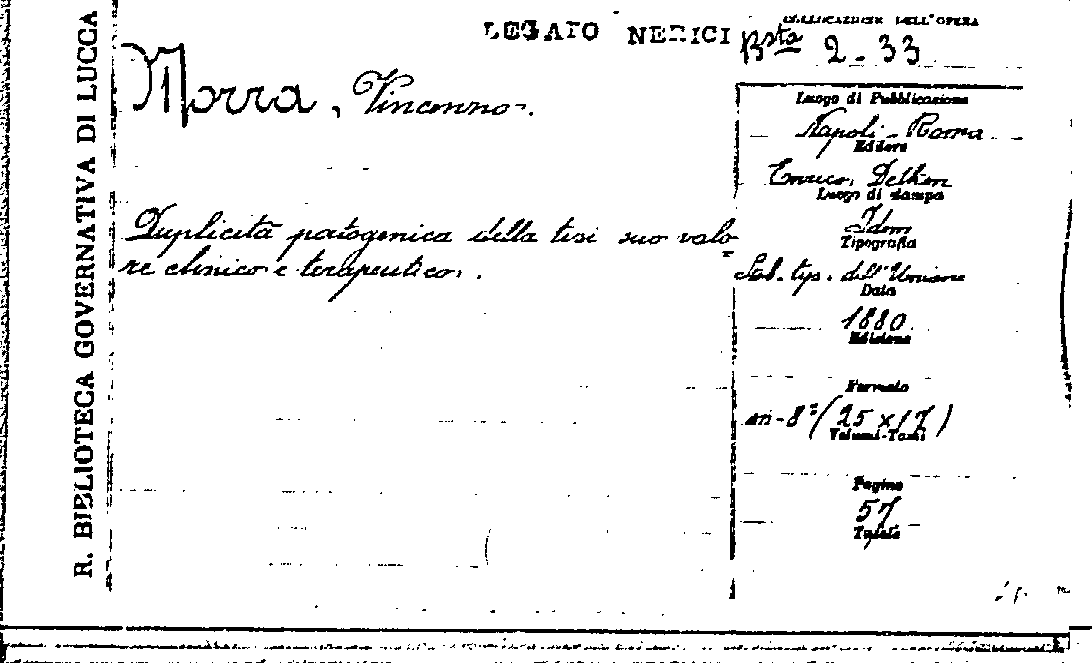 R. BIBLIOTECA GOVERNATIVA DI LUCCA
LEGATO NERICI
COLLOCAZIONE DELL'OPERA
Bsta 2-33
Morra, Vincenzo.
Duplicità patogenica della tisi suo valo=
re clinico e terapeutico.
Luogo di Pubblicazione
Napoli-Roma
Editore
Enrico Detken
Luogo di stampa
Idem
Tipografia
Stab. tip. dell'Unione
Data
1880
Edizione
Formato
in-8º (25 x 17)
Volumi-Tomi
Pagine
57